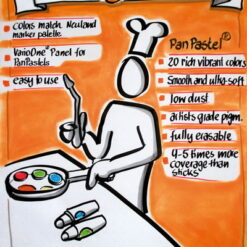 colors match Neuland
marker palette
VarioOne® Panel for
PanPastels
easy to use
PanPastel®
20 rich vibrant colors
Smooth and ultra-soft
low dust
artists grade pigm.
fully erasable
4-5 times more
coverage than
sticks